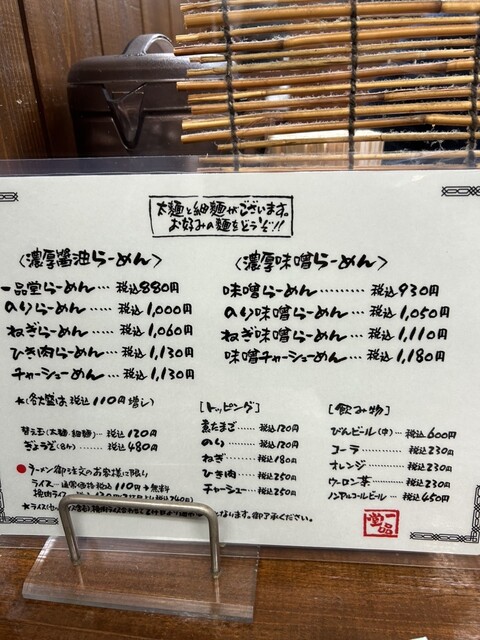 太麺と細麺がございます。
お好みの麺をどうぞ!!
〈濃厚醬油らーめん〉
一品堂らーめん… 税込880円
のりらーめん… 税込1,000円
ねぎらーめん… 税込1,060円
ひき肉らーめん… 税込1,130円
チャーシューめん… 税込1,130円
*(各大盛は、税込110円増し)
替え玉(太麺・細麺)… 税込120円
ぎょうざ(5ヶ)… 税込480円
●ラーメン御注文のお客様に限り
ライス…通常価格 税込110円→無料
〈濃厚味噌らーめん〉
味噌らーめん……… 税込930円
のり味噌らーめん… 税込1,050円
ねぎ味噌らーめん… 税込1,110円
味噌チャーシューめん… 税込1,180円
[トッピング]
蒸たまご…… 税込120円
のり…… 税込120円
ねぎ…… 税込180円
ひき肉…… 税込250円
チャーシュー… 税込250円
[飲み物]
びんビール(中)… 税込600円
コーラ…… 税込230円
オレンジ…… 税込230円
ウーロン茶…… 税込230円
ノンアルコールビール… 税込450円
となります。御了承ください。
一品堂